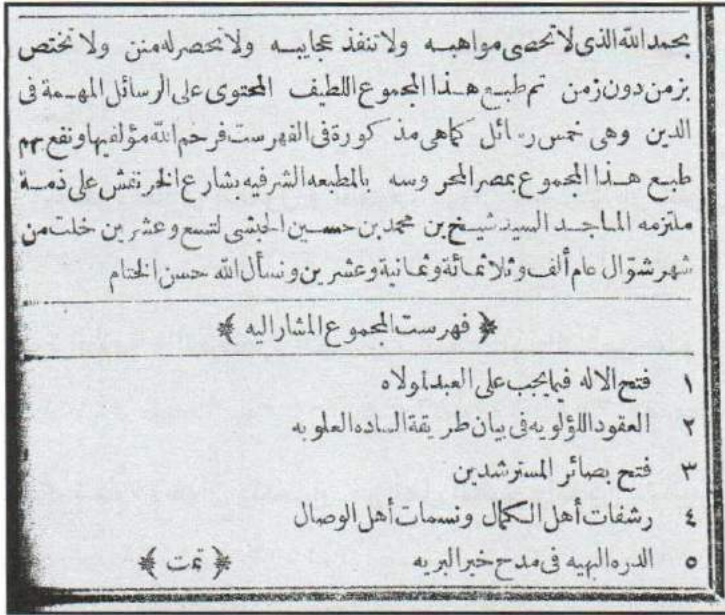 بحمد الله الذى لا تحصى مواهبه ولا تنفذ عجايبه ولا تحصر له منن ولا تختص
بزمن دون زمن تم طبع هذا المجموع اللطيف المحتوى على الرسائل المهمة فى
الدين وهى خمس رسائل كما هى مذكورة فى الفهرست فرحم الله مؤلفيها ونفع بهم
طبع هذا المجموع بمصر المحروسه بالمطبعه الشرفيه بشارع الخرنفش على ذمة
ملتزمه الماجد السيد شيخ بن محمد بن حسين الحبشى لتسع وعشرين خلت من
شهر شوال عام ألف وثلاثمائة وثمانية وعشرين ونسأل الله حسن الختام
﴿ فهرست المجموع المشار اليه ﴾
١ فتح الاله فيما يجب على العبد لمولاه
٢ العقود اللؤلويه فى بيان طريقة الساده العلويه
٣ فتح بصائر المسترشدين
٤ رشفات أهل الكمال ونسمات أهل الوصال
٥ الدره البهيه فى مدح خير البريه ﴿ تمت ﴾